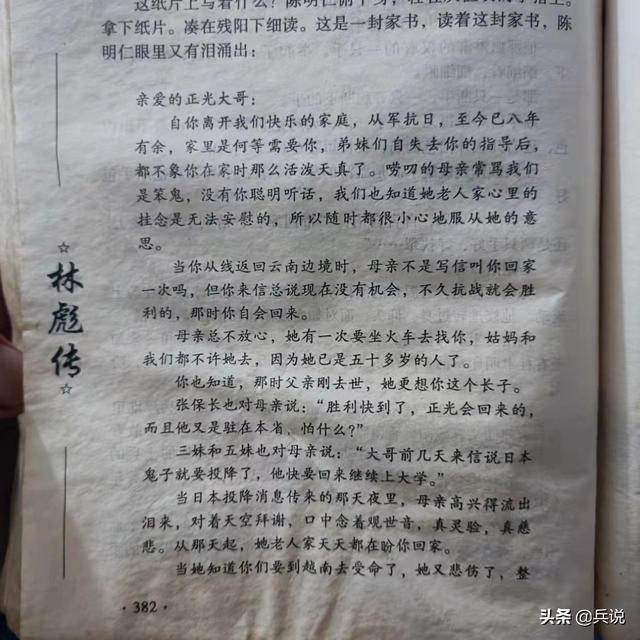 这纸片上写着什么？陈明仁俯下身，
拿下纸片。凑在残阳下细读。这是一封家书，读着这封家书，陈
明仁眼里又有泪涌出：
亲爱的正光大哥：
自你离开我们快乐的家庭，从军抗日，至今已八年
有余，家里是何等需要你，弟妹们自失去你的指导后，
都不象你在家时那么活泼天真了。唠叨的母亲常骂我们
是笨鬼，没有你聪明听话，我们也知道她老人家心里的
挂念是无法安慰的，所以随时都很小心地服从她的意
思。
当你从线返回云南边境时，母亲不是写信叫你回家
一次吗，但你来信总说现在没有机会，不久抗战就会胜
利的，那时你自会回来。
母亲总不放心，她有一次要坐火车去找你，姑妈和
我们都不许她去，因为她已是五十多岁的人了。
你也知道，那时父亲刚去世，她更想你这个长子。
张保长也对母亲说：“胜利快到了，正光会回来的，
而且他又是驻在本省，怕什么？”
三妹和五妹也对母亲说：“大哥前几天来信说日本
鬼子就要投降了，他快要回来继续上大学。”
当日本投降消息传来的那天夜里，母亲高兴得流出
泪来，对着天空拜谢，口中念着观世音，真灵验，真慈
悲。从那天起，她老人家天天都在盼你回家。
当她知道你们要到越南去受命了，她又悲伤了，整
☆
林彪传
☆
·382·
头条 @兵说